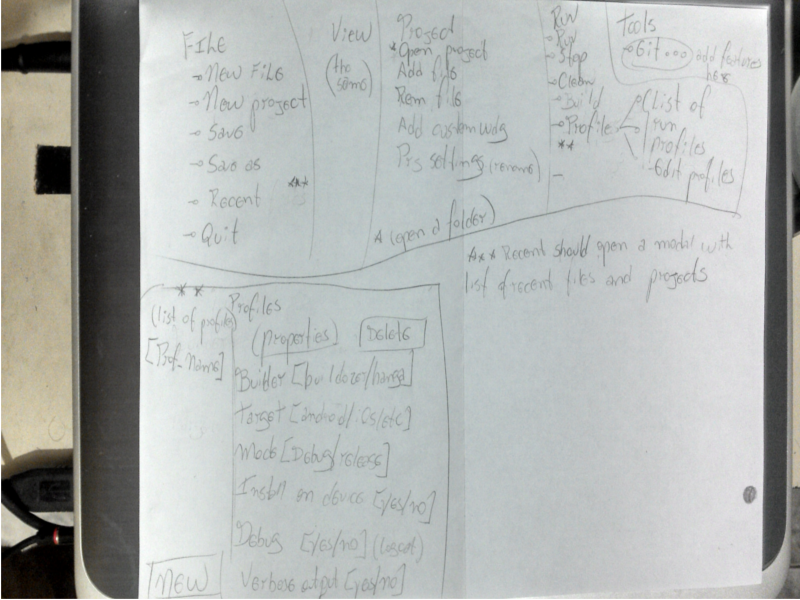 FILE
New File
New project
Save
Save as
Recent ***
Quit
View
(the
same)
Project
*Open project
Add file
Rem file
Add custom wdg
Prj settings (remove)
* (open a folder)
Run
Run
Stop
Clean
Build
Profile
**
List of
run
profiles
Edit profiles
Tools
Git... add features
here
*** Recent should open a modal with
list of recent files and projects
**
(list of profiles)
[Prof_Name]
NEW
Profiles
(properties) Delete
Builder [buildozer/hanga]
Target [android/ios/etc]
Mode [Debug/release]
Install on device [yes/no]
Debug [yes/no] (Logcat)
Verbose output [yes/no]